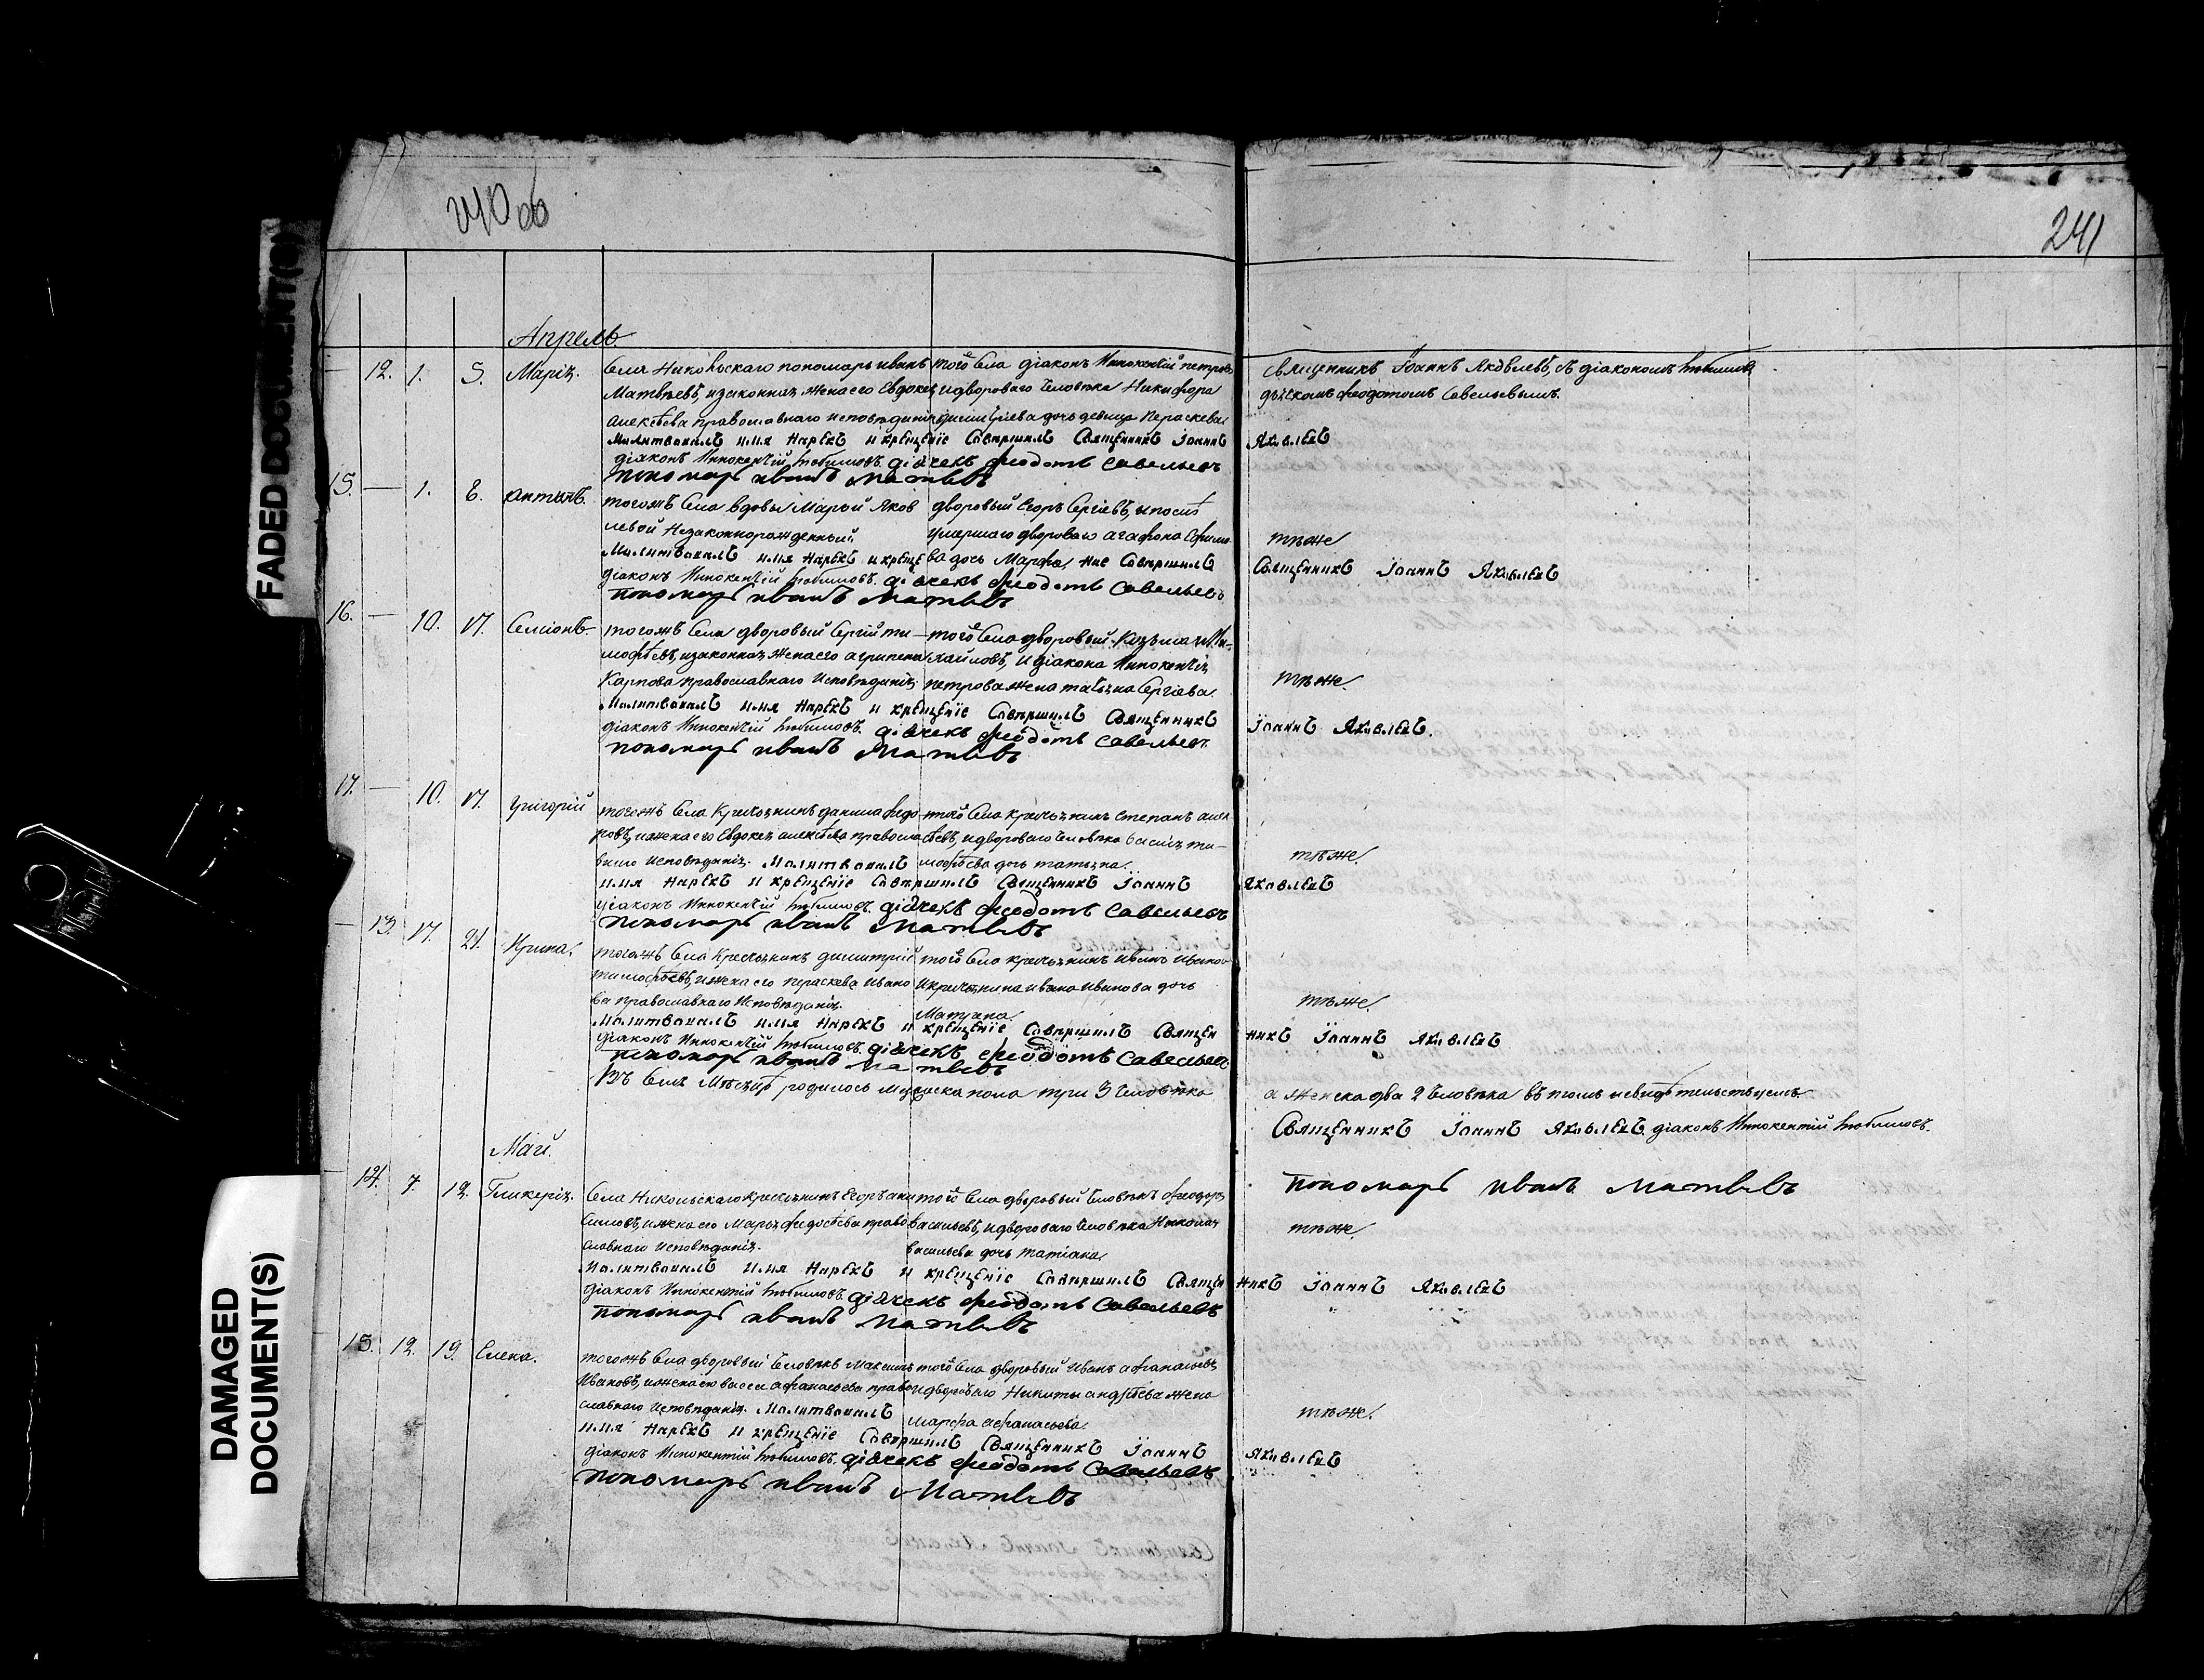 FADED DOCUMENT(S)
DAMAGED DOCUMENT(S)
240 об
241
Апрель.
12. 1. 5. Марія. Села Никольскаго пономарь иванъ Матвѣевъ, и законная жена его Евдокея алексѣева православнаго исповѣданія
того Села діаконъ Иннокентій петровъ и двороваго человѣка Никифора дочь девица Параскева
Священникъ Іоаннъ Яковлевъ, съ діакономъ Любимов
дьячкомъ феодотомъ Савельевымъ.
Молитвовалъ имя Нарекъ и крещеніе Совершилъ Священникъ Іоаннъ Яковлевъ
діаконъ Иннокентій Любимовъ. діячекъ феодотъ Савельевъ
пономарь иванъ Матвѣевъ
15. — 1. 8. Антонъ. тогожъ Села вдовы Марьи Яковлевой Незаконнорожденный
дворовый Егоръ Сергіевъ, и послѣ умершаго двороваго агафона дочь Марфа,
тѣже
Молитвовалъ имя Нарекъ и крещение Совершилъ Священникъ Іоаннъ Яковлевъ
діаконъ Иннокентій Любимовъ. діячекъ феодотъ Савельевъ
пономарь иванъ Матвѣевъ
16. — 10. 17. Семіонъ. тогожъ Села дворовый Сергій тимофѣевъ, и законная жена его агрипена Карпова православнаго исповѣданія
того Села дворовый Козьма Михайловъ, и діакона Иннокентія петрова жена татьяна Сергіева
тѣже.
Молитвовалъ имя Нарекъ и крещеніе Совершилъ Священникъ Іоаннъ Яковлевъ.
діаконъ Иннокентій Любимовъ. діячекъ феодотъ Савельевъ
пономарь иванъ Матвѣевъ
17. — 10. 17. Григорій тогожъ Села Крестьянинъ данила федоровъ, и жена его Евдокея алексѣева православнаго исповѣданія.
того Села крестьянинъ степанъ и двороваго человѣка василія тимофѣева дочь татьяна.
тѣже.
Молитвовалъ имя Нарекъ и крещеніе Совершилъ Священникъ Іоаннъ Яковлевъ
діаконъ Иннокентій Любимовъ. діячекъ феодотъ Савельевъ
пономарь иванъ Матвѣевъ
— 13. 17. 21. Ирина. тогожъ Села Крестьянинъ димитрій тимофѣевъ, и жена его параскева Иванова православнаго Исповѣданія
того Села крестьянинъ Иванъ Ивановъ и крестьянина ивана иванова дочь Матрена.
тѣже.
Молитвовалъ имя Нарекъ и крещеніе Совершилъ Священникъ Іоаннъ Яковлевъ
діаконъ Иннокентій Любимовъ. діячекъ феодотъ Савельевъ
пономарь иванъ Матвѣевъ
Въ Семъ Мѣсяцѣ родилось мужеска пола три 3 человѣка а женска два 2 человѣка въ томъ и свидѣтельствуемъ
Священникъ Іоаннъ Яковлевъ діаконъ Иннокентій Любимовъ.
пономарь иванъ Матвѣевъ
Май.
— 14. 7. 12. Гликерія. Села Никольскаго крестьянинъ Егоръ анисимовъ, и жена его Марья федосѣева православнаго исповѣданія.
того Села дворовый человѣкъ феодоръ васильевъ, и двороваго человѣка Николая васильева дочь татіана
тѣже.
Молитвовалъ имя Нарекъ и крещеніе Совершилъ Священникъ Іоаннъ Яковлевъ
діаконъ Иннокентій Любимовъ діячекъ феодотъ Савельевъ
пономарь иванъ Матвѣевъ
— 15. 12. 19. Елена. тогожъ Села дворовый человѣкъ Максимъ Ивановъ, и жена ево васса афанасьева православнаго исповѣданія.
того Села дворовый Иванъ афанасьевъ и двороваго Никиты андрѣева жена марфа афанасьева.
тѣже.
Молитвовалъ имя Нарекъ и крещеніе Совершилъ Священникъ Іоаннъ Яковлевъ
діаконъ Иннокентій Любимовъ. діячекъ феодотъ Савельевъ
пономарь иванъ Матвѣевъ